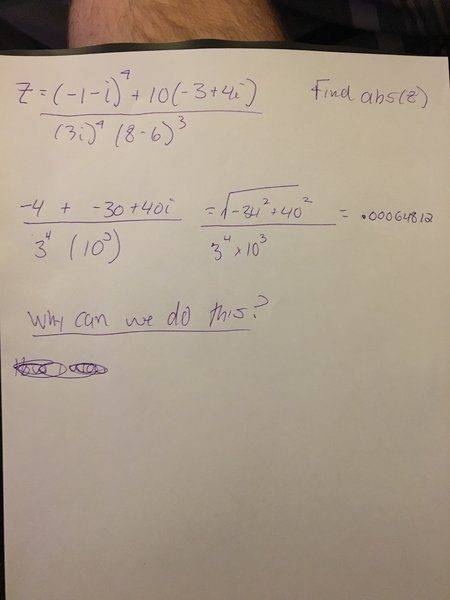 Z = (-1-i)^4 + 10(-3+4i) / (3i)^4 (8-6)^3 Find abs(z)
-4 + -30+40i / 3^4 (10^3) = √-34^2+40^2 / 3^4 x 10^3 = .00064812
Why can we do this?